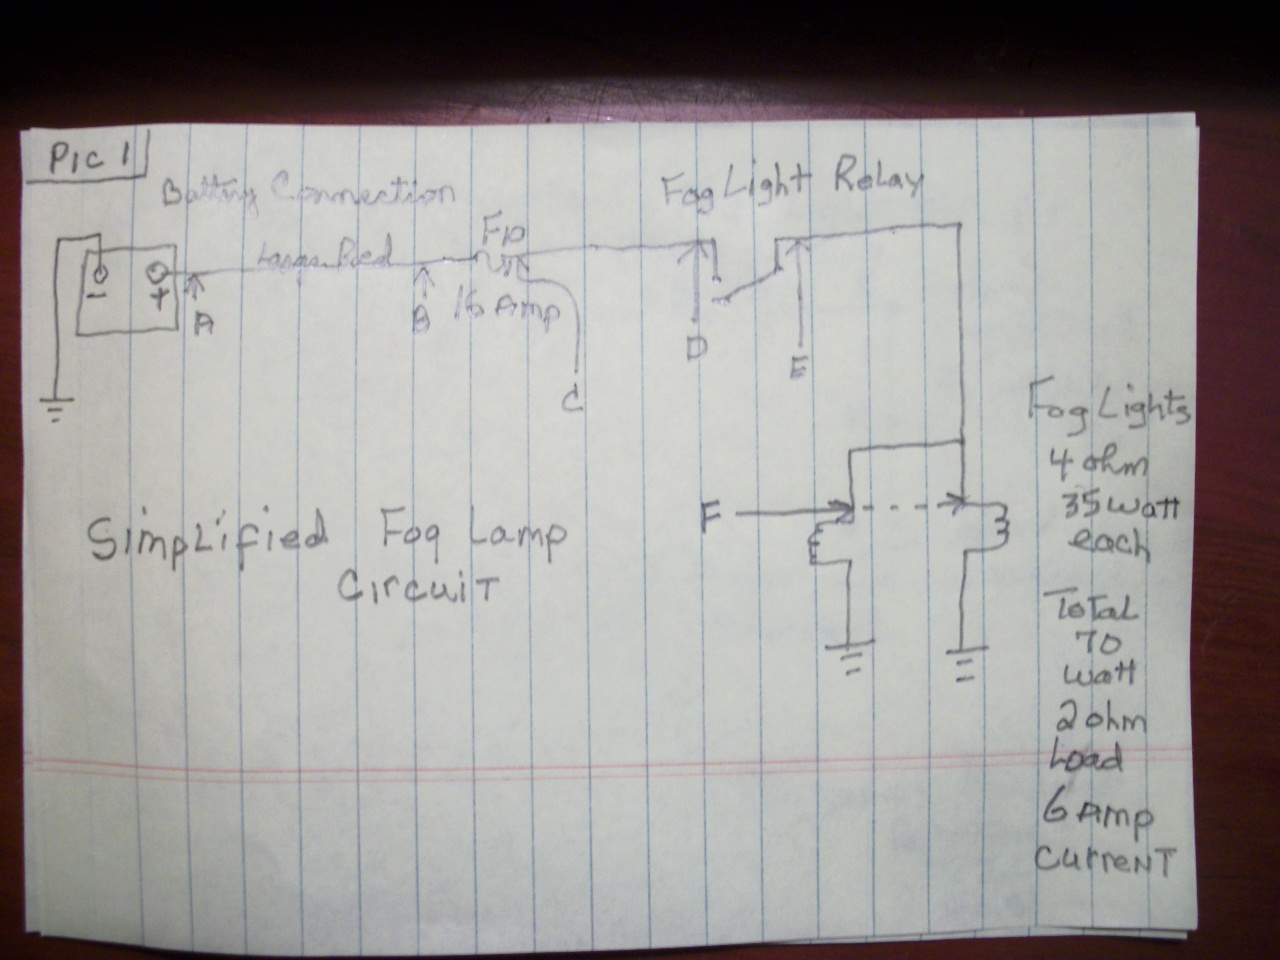 Pic 1
Battery Connection
Fog Light Relay
Large Red
-
+
A
B
16 Amp
C
D
E
F
Simplified Fog Lamp
Circuit
Fog Lights
4 ohm
35 watt
each
Total
70
watt
2 ohm
Load
6 Amp
Current